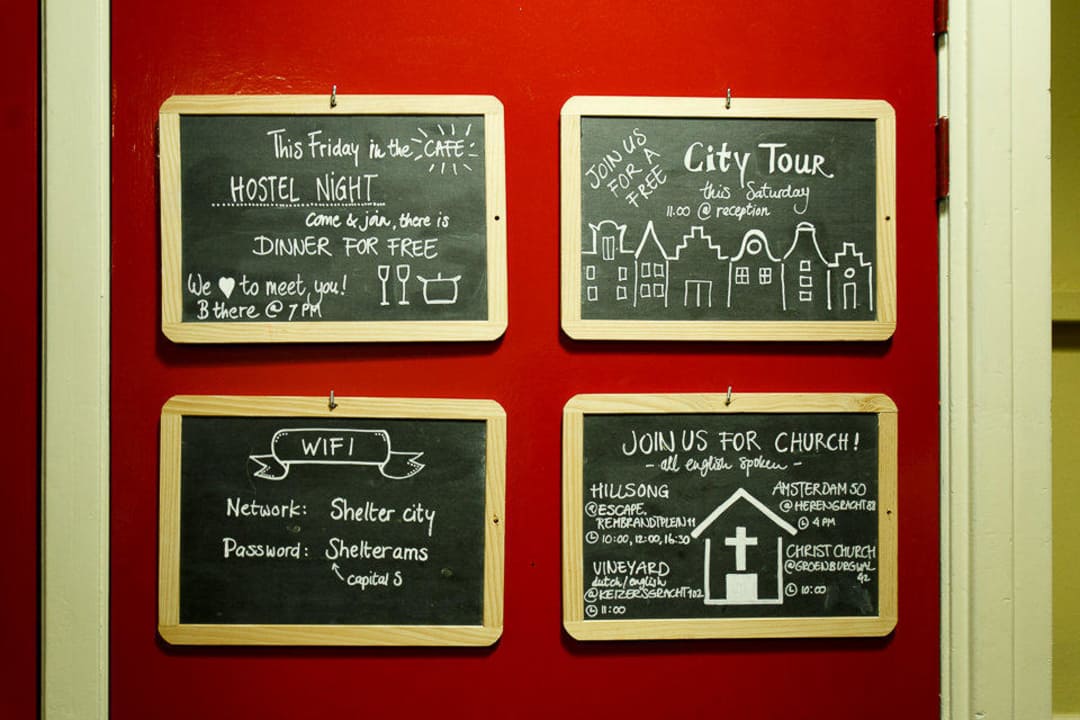 This Friday in the CAFE
HOSTEL NIGHT
come & join, there is
DINNER FOR FREE
We ♥ to meet you!
B there @ 7 PM
JOIN US
FOR A
FREE
City Tour
this Saturday
11.00 @ reception
WIFI
Network: Shelter city
Password: Shelterams
capital S
JOIN US FOR CHURCH!
- all english spoken -
HILLSONG
@ESCAPE,
REMBRANDTPLEIN 11
10:00, 12:00, 16:30
VINEYARD
dutch/english
@KEIZERSGRACHT 102
11:00
AMSTERDAM 50
@HERENGRACHT 88
4 PM
CHRIST CHURCH
@GROENBURGWAL
42
10:00